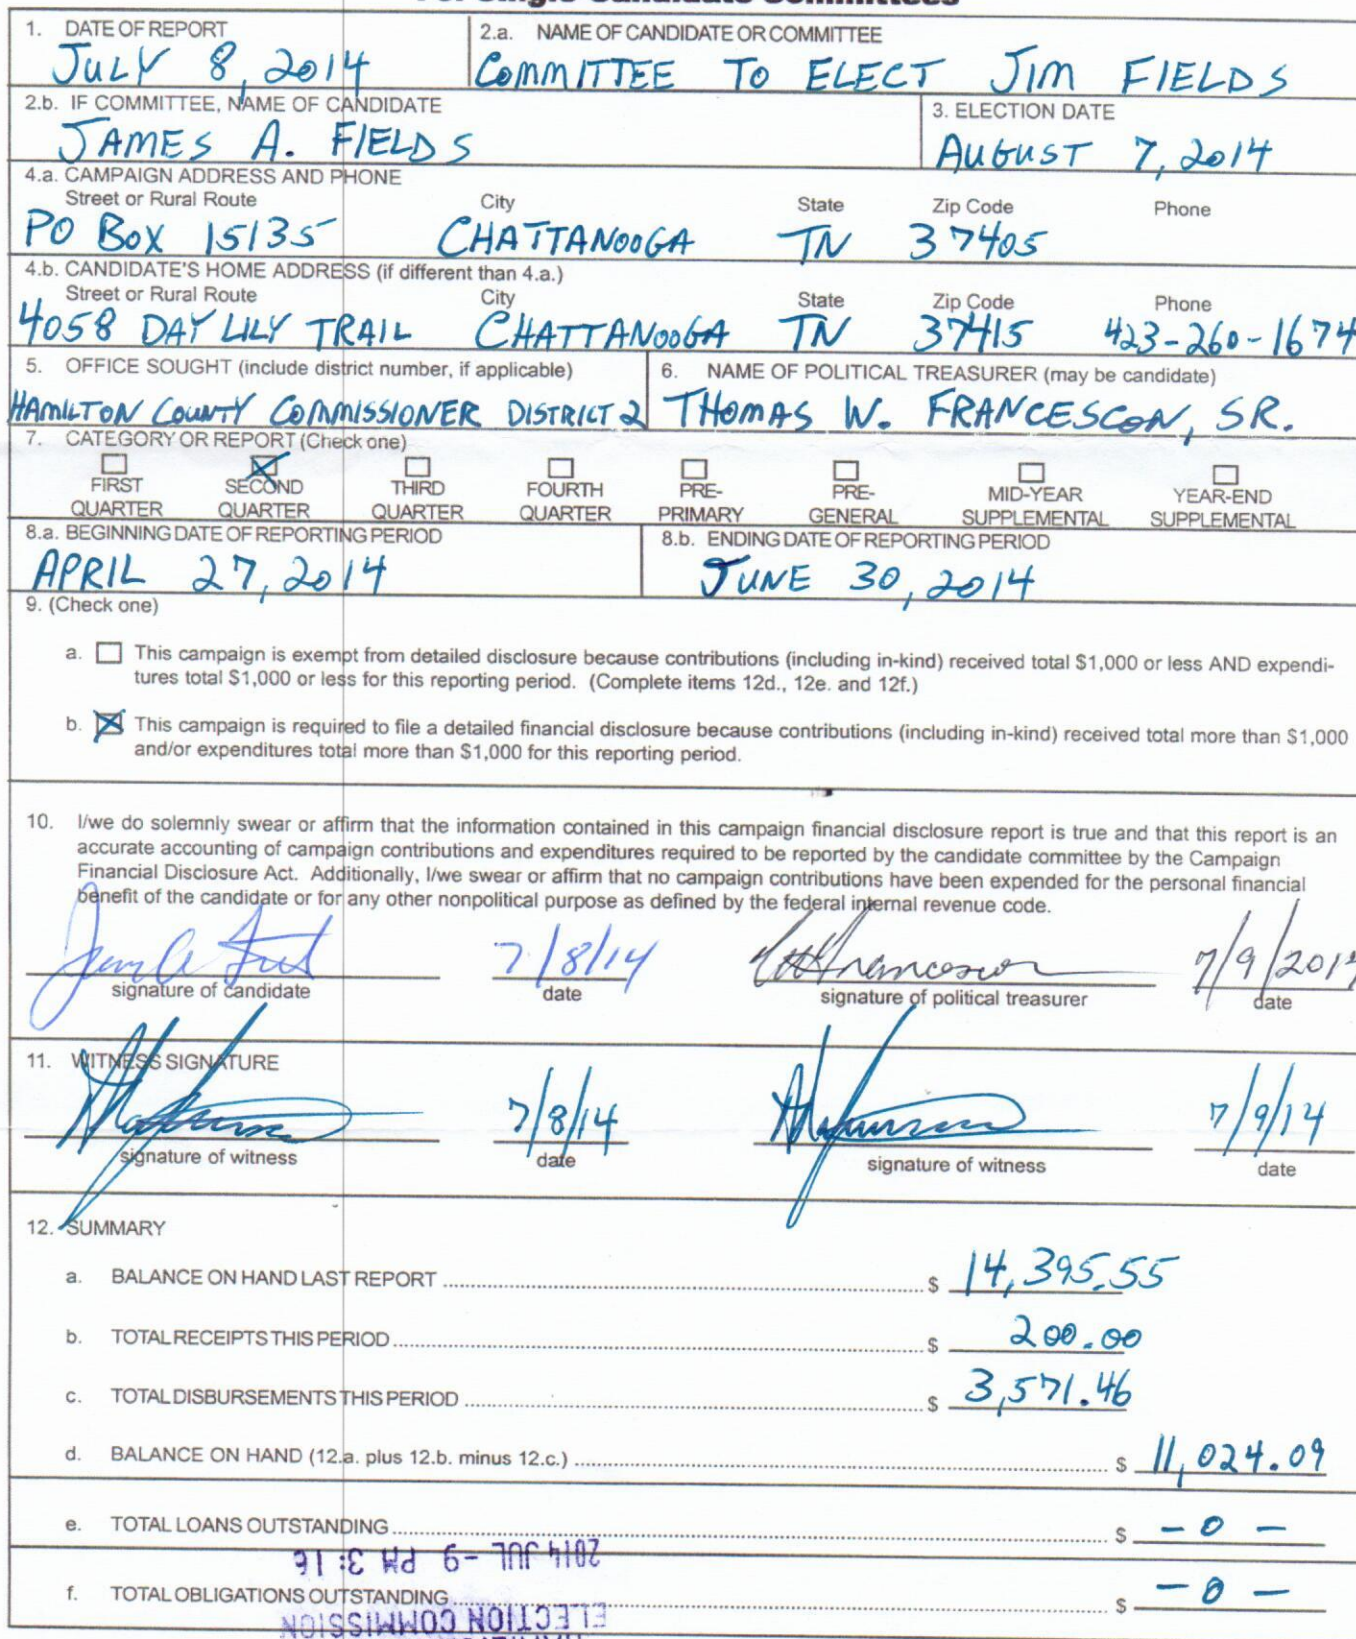 For Single-Candidate Committees
1. DATE OF REPORT
JULY 8, 2014
2.a. NAME OF CANDIDATE OR COMMITTEE
COMMITTEE TO ELECT JIM FIELDS
2.b. IF COMMITTEE, NAME OF CANDIDATE
JAMES A. FIELDS
3. ELECTION DATE
AUGUST 7, 2014
4.a. CAMPAIGN ADDRESS AND PHONE
Street or Rural Route City State Zip Code Phone
PO BOX 15135 CHATTANOOGA TN 37405
4.b. CANDIDATE'S HOME ADDRESS (if different than 4.a.)
Street or Rural Route City State Zip Code Phone
4058 DAY LILY TRAIL CHATTANOOGA TN 37415 423-260-1674
5. OFFICE SOUGHT (include district number, if applicable)
HAMILTON COUNTY COMMISSIONER DISTRICT 2
6. NAME OF POLITICAL TREASURER (may be candidate)
THOMAS W. FRANCESCON, SR.
7. CATEGORY OR REPORT (Check one)
FIRST SECOND THIRD FOURTH PRE- PRE- MID-YEAR YEAR-END
QUARTER QUARTER QUARTER QUARTER PRIMARY GENERAL SUPPLEMENTAL SUPPLEMENTAL
8.a. BEGINNING DATE OF REPORTING PERIOD
APRIL 27, 2014
8.b. ENDING DATE OF REPORTING PERIOD
JUNE 30, 2014
9. (Check one)
a. This campaign is exempt from detailed disclosure because contributions (including in-kind) received total $1,000 or less AND expendi-
tures total $1,000 or less for this reporting period. (Complete items 12d., 12e. and 12f.)
b. This campaign is required to file a detailed financial disclosure because contributions (including in-kind) received total more than $1,000
and/or expenditures total more than $1,000 for this reporting period.
10. I/we do solemnly swear or affirm that the information contained in this campaign financial disclosure report is true and that this report is an
accurate accounting of campaign contributions and expenditures required to be reported by the candidate committee by the Campaign
Financial Disclosure Act. Additionally, I/we swear or affirm that no campaign contributions have been expended for the personal financial
benefit of the candidate or for any other nonpolitical purpose as defined by the federal internal revenue code.
7/8/14 7/9/2014
signature of candidate date signature of political treasurer date
11. WITNESS SIGNATURE
7/8/14 7/9/14
signature of witness date signature of witness date
12. SUMMARY
a. BALANCE ON HAND LAST REPORT $ 14,395.55
b. TOTAL RECEIPTS THIS PERIOD $ 200.00
c. TOTAL DISBURSEMENTS THIS PERIOD $ 3,571.46
d. BALANCE ON HAND (12.a. plus 12.b. minus 12.c.) $ 11,024.09
e. TOTAL LOANS OUTSTANDING $ -0-
2014 JUL -9 PM 3:16
f. TOTAL OBLIGATIONS OUTSTANDING $ -0-
ELECTION COMMISSION